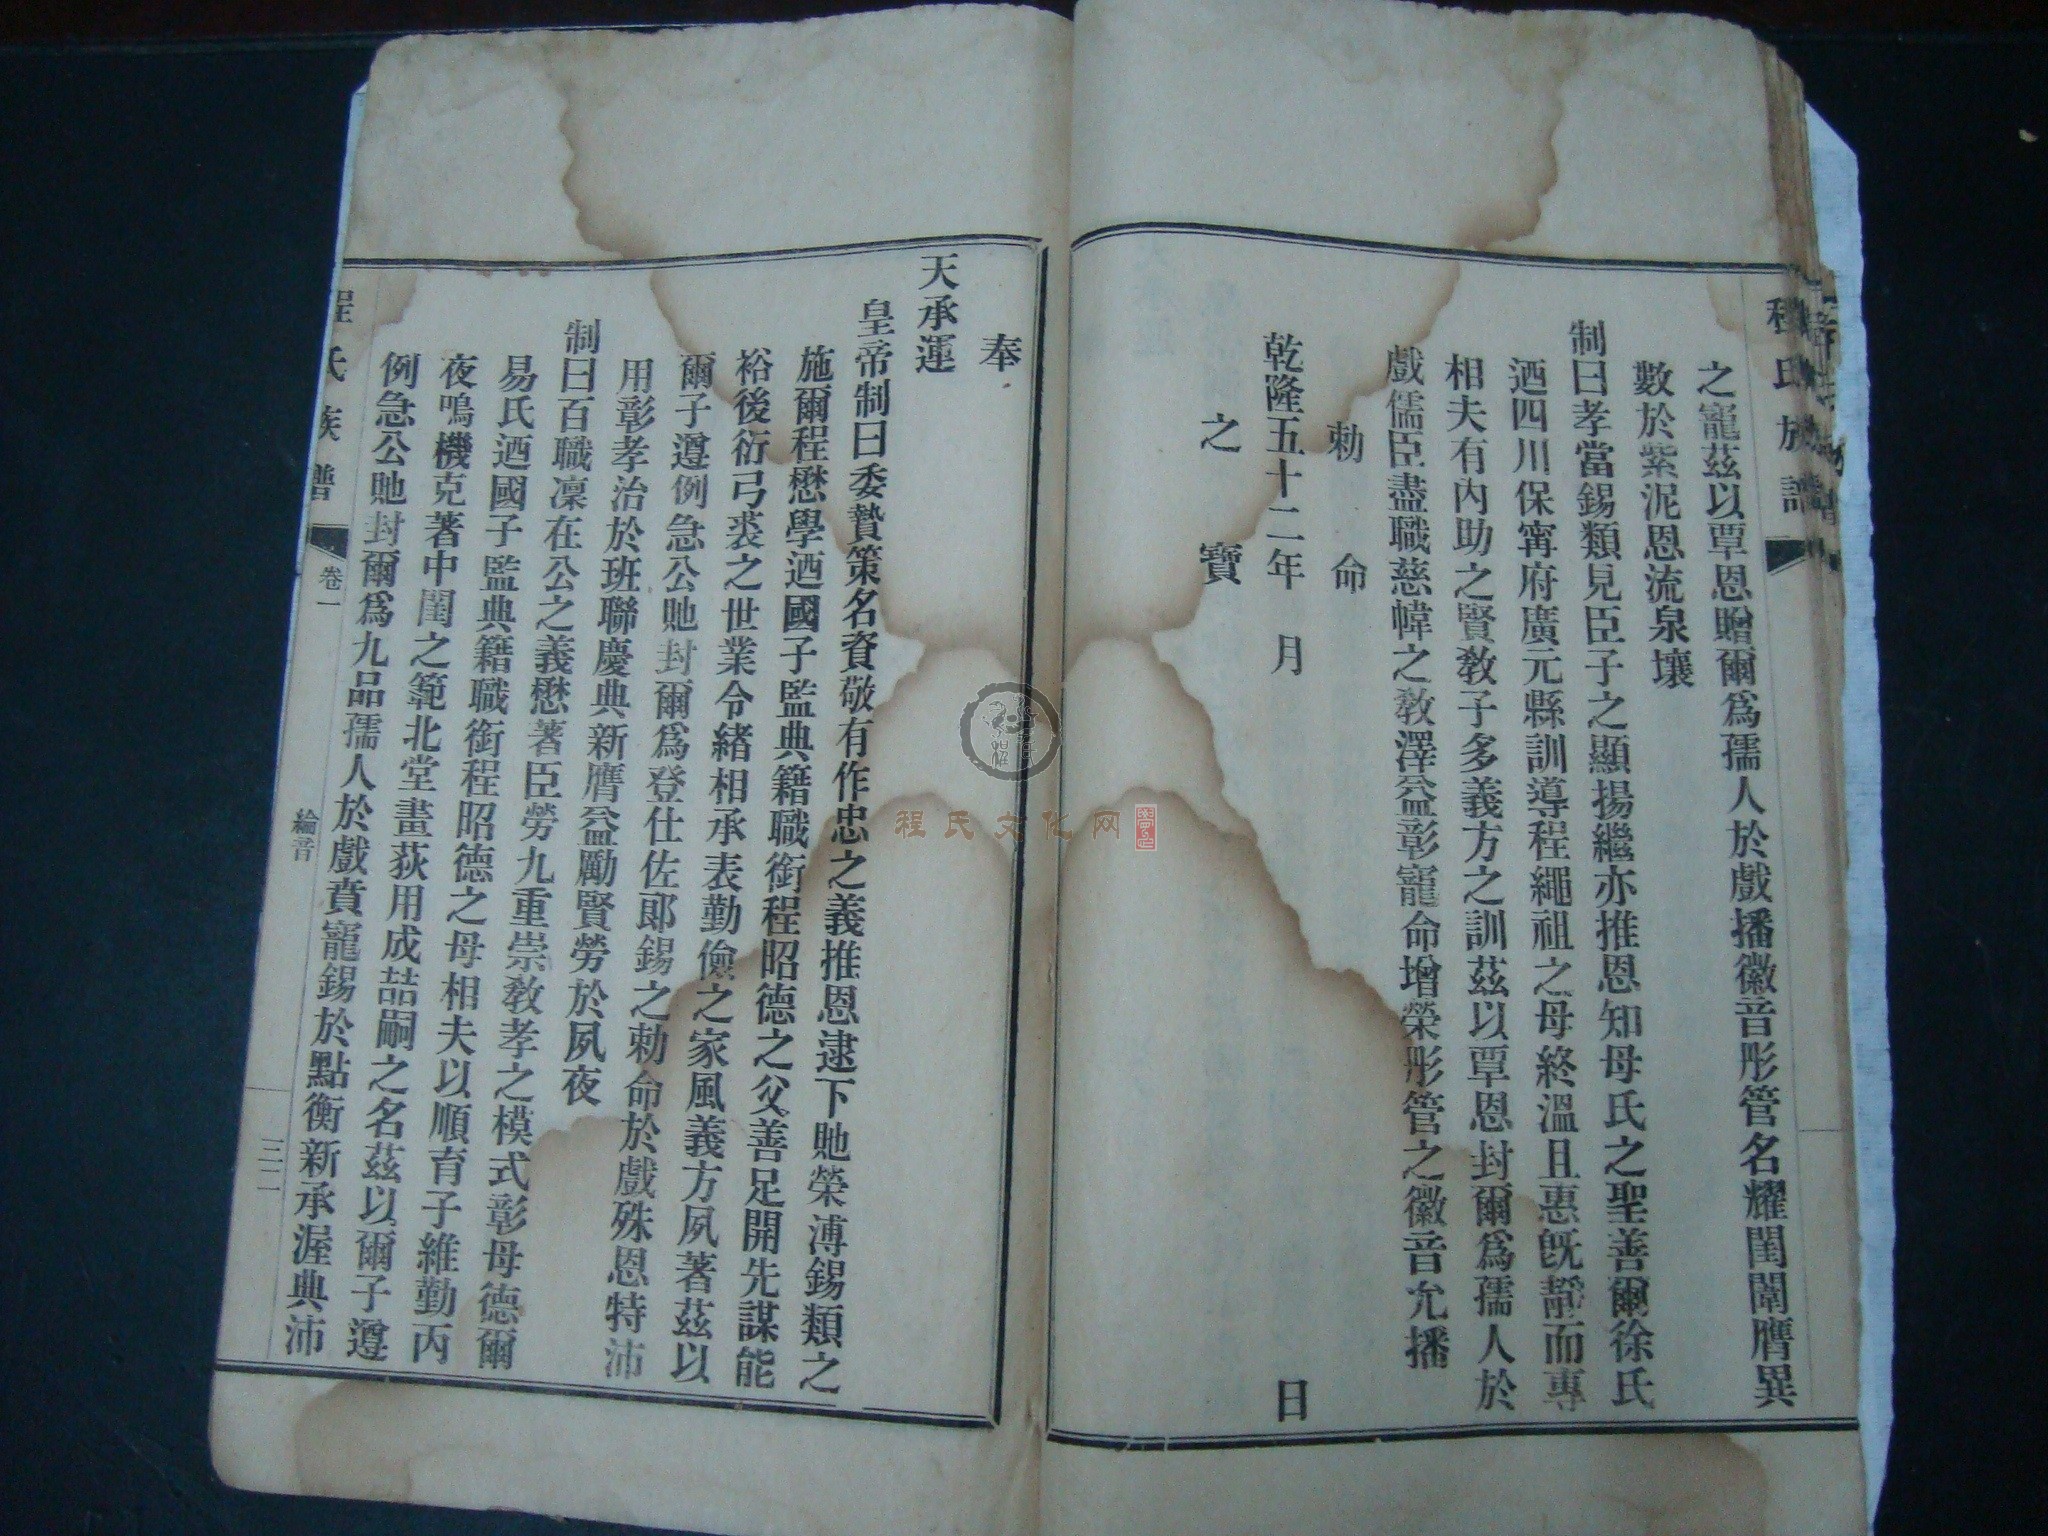 程氏族譜
之寵茲以覃恩贈爾爲孺人於戲播徽音彤管名耀閨闈膺異
數於紫泥恩流泉壤
制曰孝當錫類見臣子之顯揚繼亦推恩知母氏之聖善爾徐氏
迺四川保甯府廣元縣訓導程繩祖之母終溫且惠旣靜而專
相夫有內助之賢敎子多義方之訓茲以覃恩封爾爲孺人於
戲儒臣盡職慈幃之敎澤益彰寵命增榮彤管之徽音允播
勅命
乾隆五十二年 月 日
之寶
奉
天承運
皇帝制曰委贄策名資敬有作忠之義推恩逮下貤榮溥錫類之
施爾程懋學迺國子監典籍職銜程昭德之父善足開先謀能
裕後衍弓裘之世業令緒相承表勤儉之家風義方夙著茲以
爾子遵例急公貤封爾爲登仕佐郎錫之勅命於戲殊恩特沛
用彰孝治於班聯慶典新膺益勵賢勞於夙夜
制曰百職凜在公之義懋著臣勞九重崇敎孝之模式彰母德爾
易氏迺國子監典籍職銜程昭德之母相夫以順育子維勤丙
夜鳴機克著中閨之範北堂畫荻用成喆嗣之名茲以爾子遵
例急公貤封爾爲九品孺人於戲賁寵錫於點衡新承渥典沛
程氏族譜 卷一 綸音 三二
程氏文化网